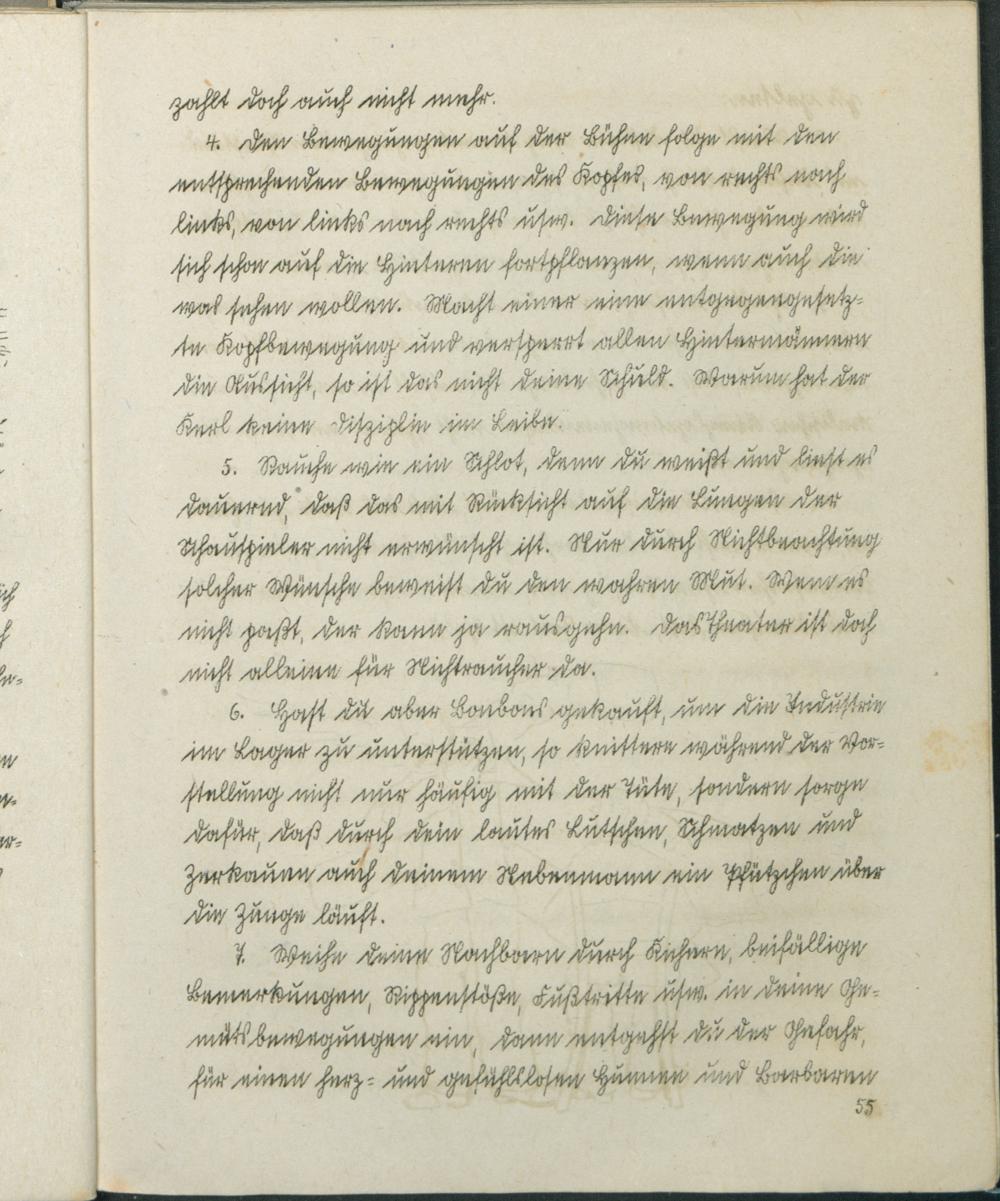 zahlt doch auch nicht mehr.
4. Den Bewegungen auf der Bühne folge mit den
entsprechenden Bewegungen des Kopfes, von rechts nach
links, von links nach rechts usw. Diese Bewegung wird
sich schon auf die Hinteren fortpflanzen, wenn auch die
was sehen wollen. Macht einer eine entgegengesetz=
te Kopfbewegung und versperrt allen Hintermännern
die Aussicht, so ist das nicht deine Schuld. Warum hat der
Kerl keine Disziplin im Leibe.
5. Rauche wie ein Schlot, denn du weißt und liest es
dauernd, daß das mit Rücksicht auf die Lungen der
Schauspieler nicht erwünscht ist. Nur durch Nichtbeachtung
solcher Wünsche beweist du den wahren Mut. Wem es
nicht paßt, der kann ja rausgehn. Das Theater ist doch
nicht alleine für Nichtraucher da.
6. Hast du aber Bonbons gekauft, um die Industrie
im Lager zu unterstützen, so knittere während der Vor=
stellung nicht nur häufig mit der Tüte, sondern sorge
dafür, daß durch dein lautes Lutschen, Schmatzen und
Zerkauen auch deinem Nebenmann ein Pfützchen über
die Zunge läuft.
7. Weihe deine Nachbarn durch Kichern, beifällige
Bemerkungen, Rippenstöße, Fußtritte usw. in deine Ge=
mütsbewegungen ein, dann entgehst du der Gefahr,
für einen herz= und gefühllosen Hunnen und Barbaren
55